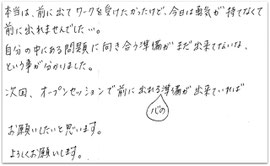 本当は、前に出てワークを受けたかったけど、今日は勇気が持てなくて
前に出れませんでした…。
自分の中にある問題に向き合う準備がまだ出来てないな、
という事が分かりました。
次回、オープンセッションで前に出れる準備が出来ていれば
心の
お願いしたいと思います。
よろしくお願いします。